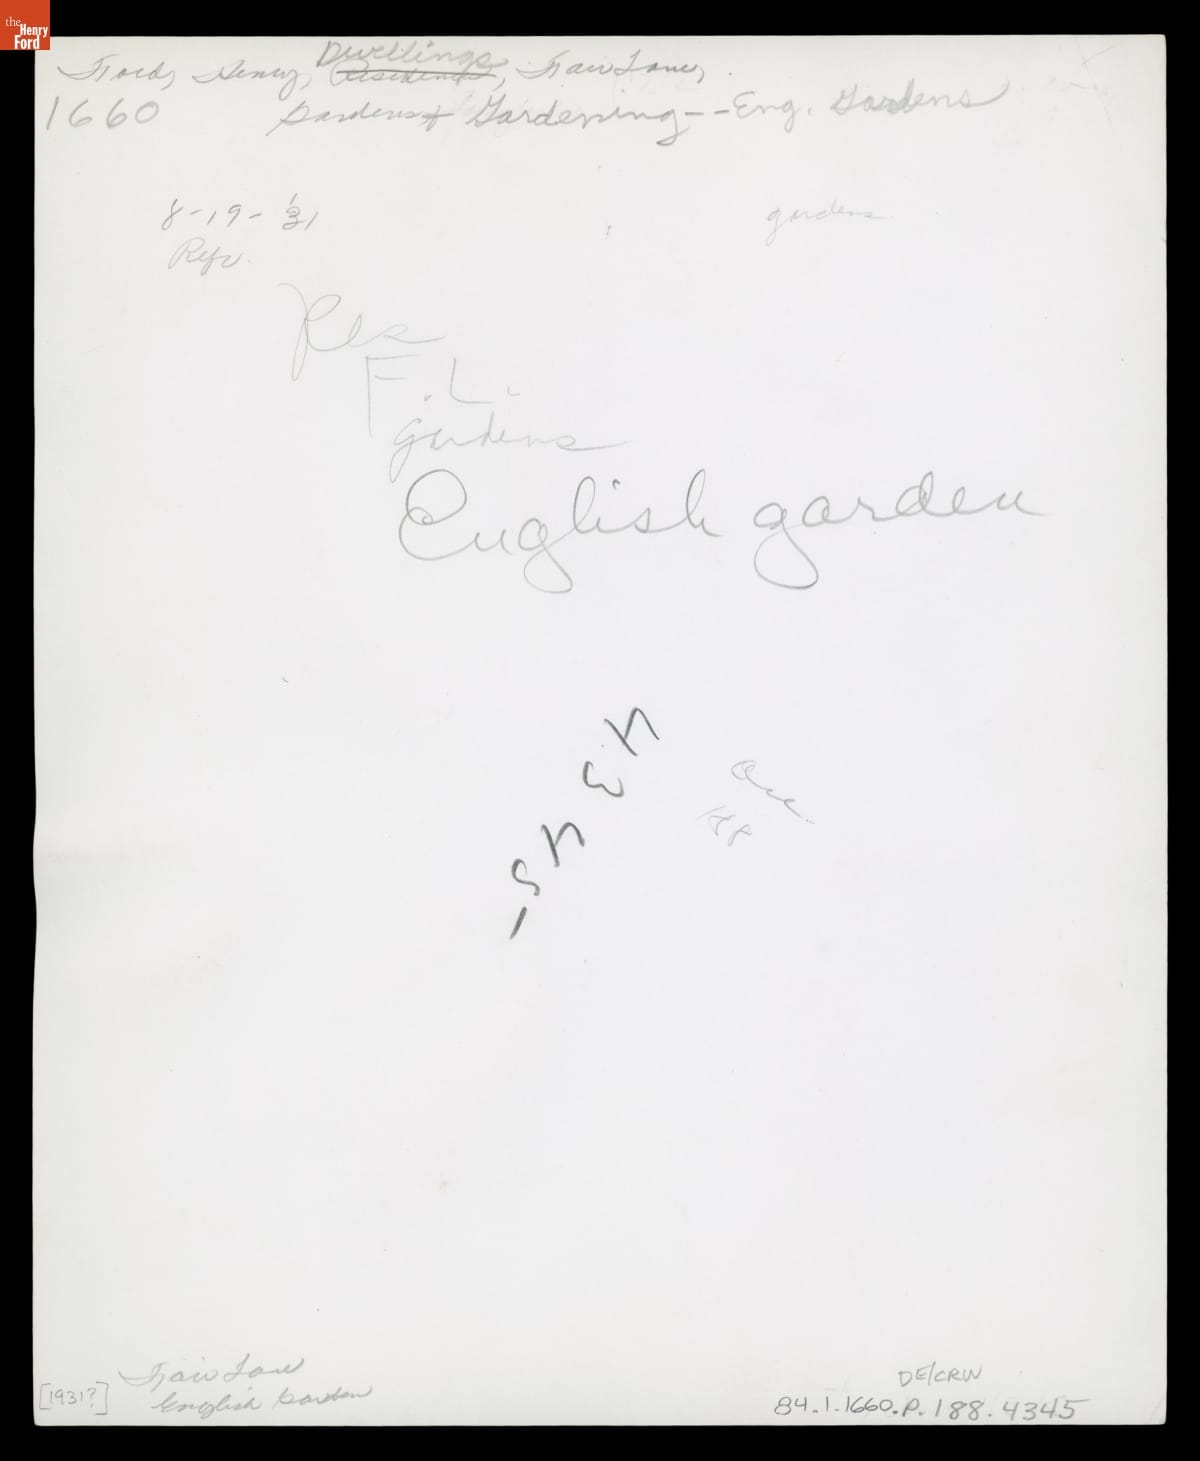 the Henry Ford
Ford, Henry, Dwellings, Residence, Fair Lane,
1660 Gardens & Gardening--Eng. Gardens
8-19-'31
gardens
Res
F.L.
gardens
English garden
Acc.
Fair Lane
English Garden
[1931?]
DE/CRW
84.1.1660.P.188.4345